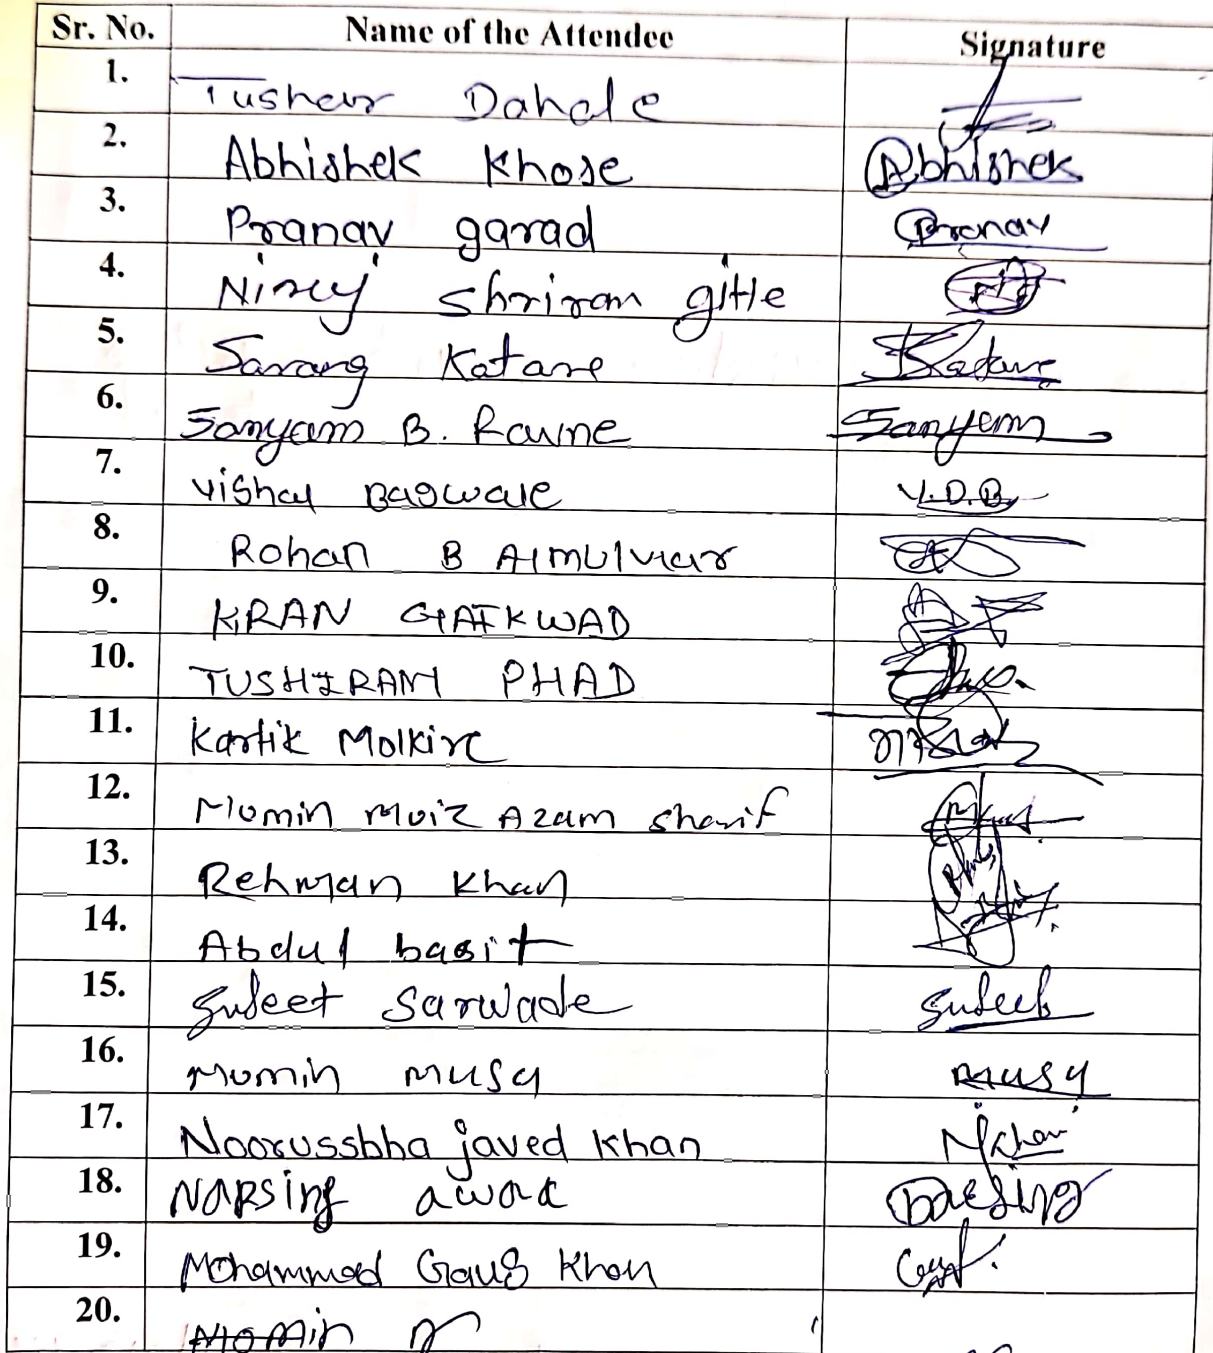 Sr. No. Name of the Attendee Signature
1. Tushar Dahale
2. Abhishek Khose Abhishek
3. Pranav garad Pranav
4. Niraj Shriram gitte
5. Sarang Katare Katare
6. Sanyam B. Raune Sanyam
7. Vishal Bagwale V.D.B.
8. Rohan B
9. KIRAN GAIKWAD
10. TUSHIRAM PHAD
11. Kartik Molkire
12. Momin Moiz Azam Sharif
13. Rehman Khan
14. Abdul basit
15. Sujeet Sarwade Sujeet
16. Momin Musa Musa
17. Noorussbha javed Khan NKhan
18. NARSing awad Narsing
19. Mohammad Gaus Khan
20. Momin